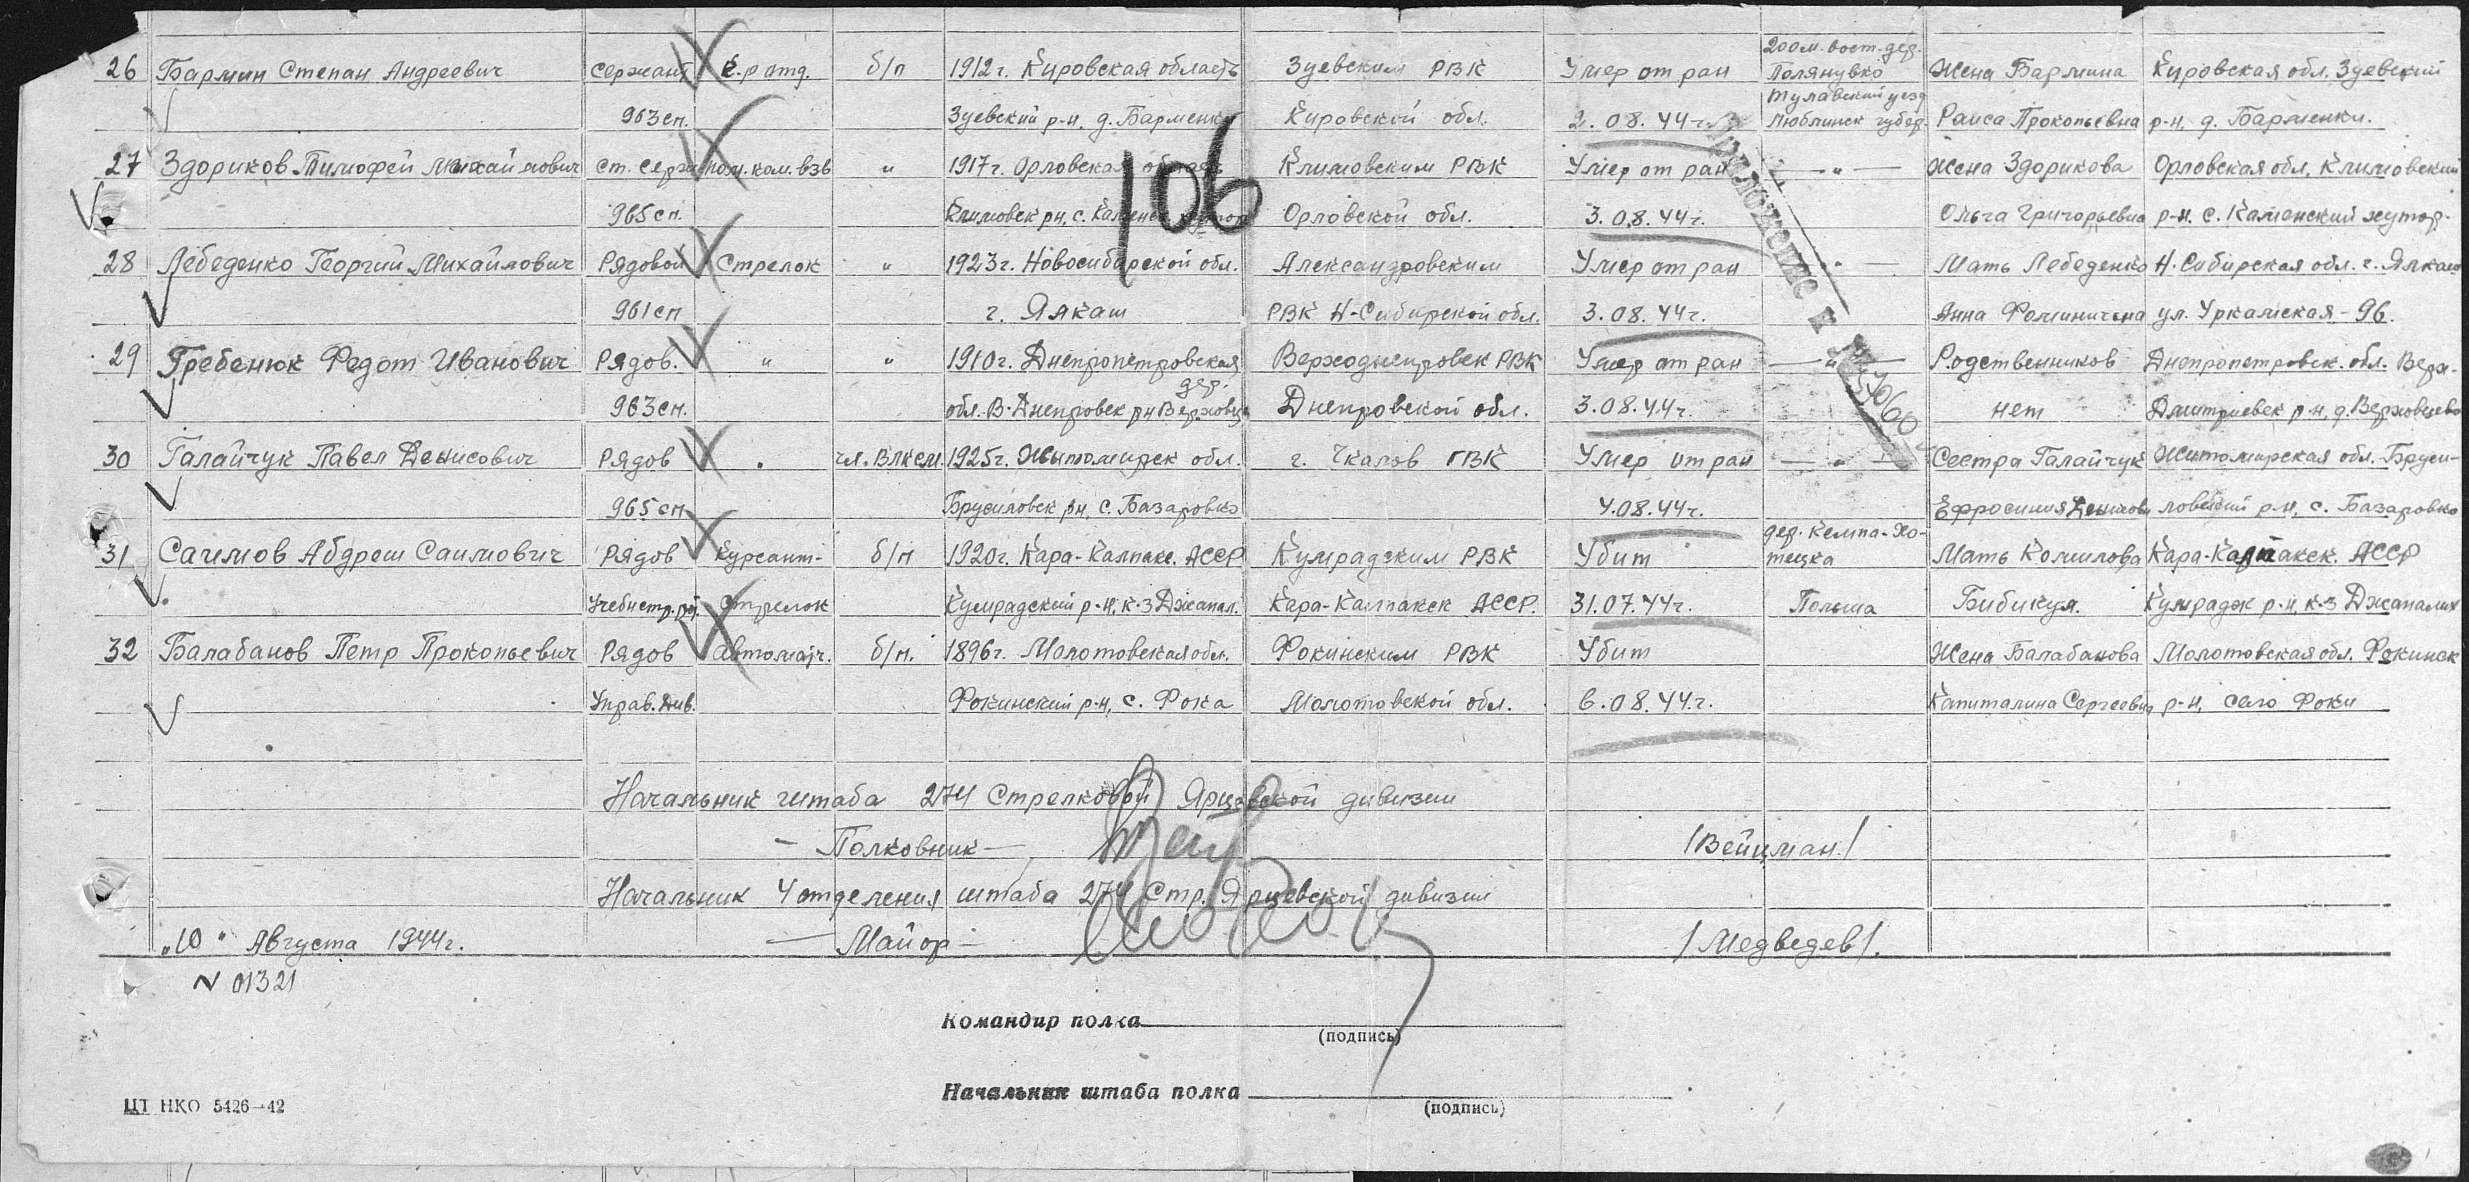 200м. вост. дер.
26 Бармин Степан Андреевич сержант к-р отд. б/п 1912г. Кировская область Зуевским РВК Умер от ран Полянувко Жена Бармина Кировская обл. Зуевский
963 сп. Зуевский р-н, д. Барменки Кировской обл. 2.08.44г. Люблинск губер. Раиса Прокопьевна р-н, д. Барменки.
27 Здориков Тимофей Михайлович ст. серж пом. ком. взв " 1917г. Орловская область Климовским РВК Умер от ран — " — Жена Здорикова Орловская обл. Климовский
965 сп. Климовск рн, с. Каменск хутор Орловской обл. 3.08.44г. Ольга Григорьевна р-н. с. Каменский хутор.
28 Лебеденко Георгий Михайлович Рядовой Стрелок " 1923г. Новосибирской обл. Александровским Умер от ран — " — Мать Лебеденко Н. Сибирская обл. г. Ялкаш
961 сп г. Ялкаш РВК Н-Сибирской обл. 3.08.44г. Анна Фоминична ул. Уркамская - 96.
29 Гребенюк Федот Иванович Рядов. " " 1910г. Днепропетровская Верходнепровск РВК Умер от ран — " — Родственников Днепропетровск. обл. Верх-
дер.
963 сп. обл. В-Днепровск рн Верховце Днепровской обл. 3.08.44г. нет Дмитриевск р-н, д. Верховцево
30 Галайчук Павел Денисович Рядов " чл. Влксм 1925г. Житомирск обл. г. Чкалов ГВК Умер от ран — " — Сестра Галайчук Житомирская обл. Бруси-
965 сп Брусиловск рн, с. Базаровко 4.08.44г. Ефросиния Денисовн ловский р-н, с. Базаровко
дер. Кемпа-Хо-
31 Саимов Абдреш Саимович Рядов Курсант- б/п 1920г. Кара-Калпакс. АССР Кумрадским РВК Убит тецка Мать Комилова Кара-Калпакск. АССР
Учебн стр. р. Стрелок Кумрадский р-н, к-з Джапал. Кара-Калпакск АССР. 31.07.44г. Польша Бибикул. Кумрадск р-н, к-з Джапалик
32 Балабанов Петр Прокопьевич Рядов Автомат. б/п. 1896г. Молотовская обл. Фокинским РВК Убит Жена Балабанова Молотовская обл. Фокинск
Управ. див. Фокинский р-н, с. Фока Молотовской обл. 6.08.44.г. Капиталина Сергеевна р-н, село Фоки
106
Приложение к
Начальник штаба 274 Стрелковой Ярцевской дивизии
— Полковник — /Вейцман./
Начальник 4 отделения штаба 274 Стр. Ярцевской дивизии
„10" Августа 1944г. — Майор — /Медведев/.
N 01321
Командир полка
(подпись)
Начальник штаба полка
(подпись)
ЦТ НКО 5426—42